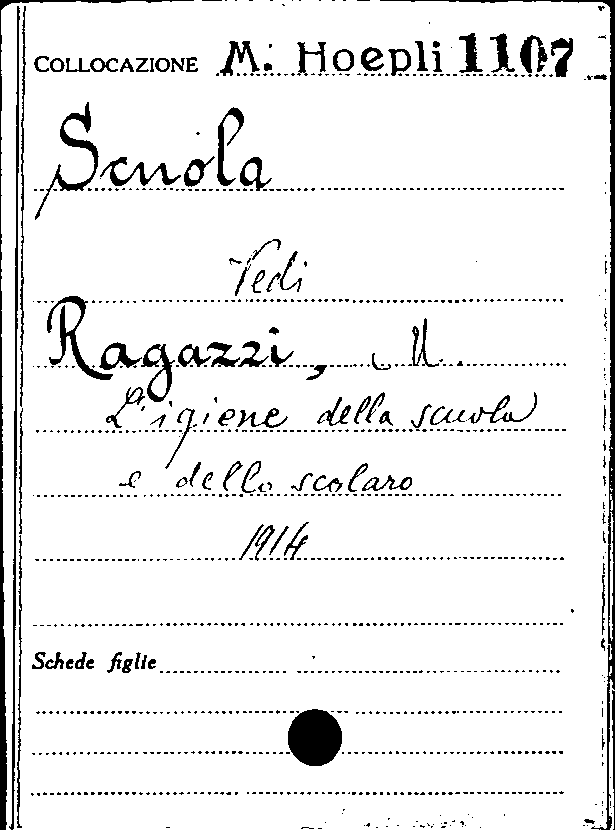 COLLOCAZIONE M. Hoepli 1107
Scuola
Vedi
Ragazzi, M.
L'igiene della scuola
e dello scolaro
1914
Schede figlie